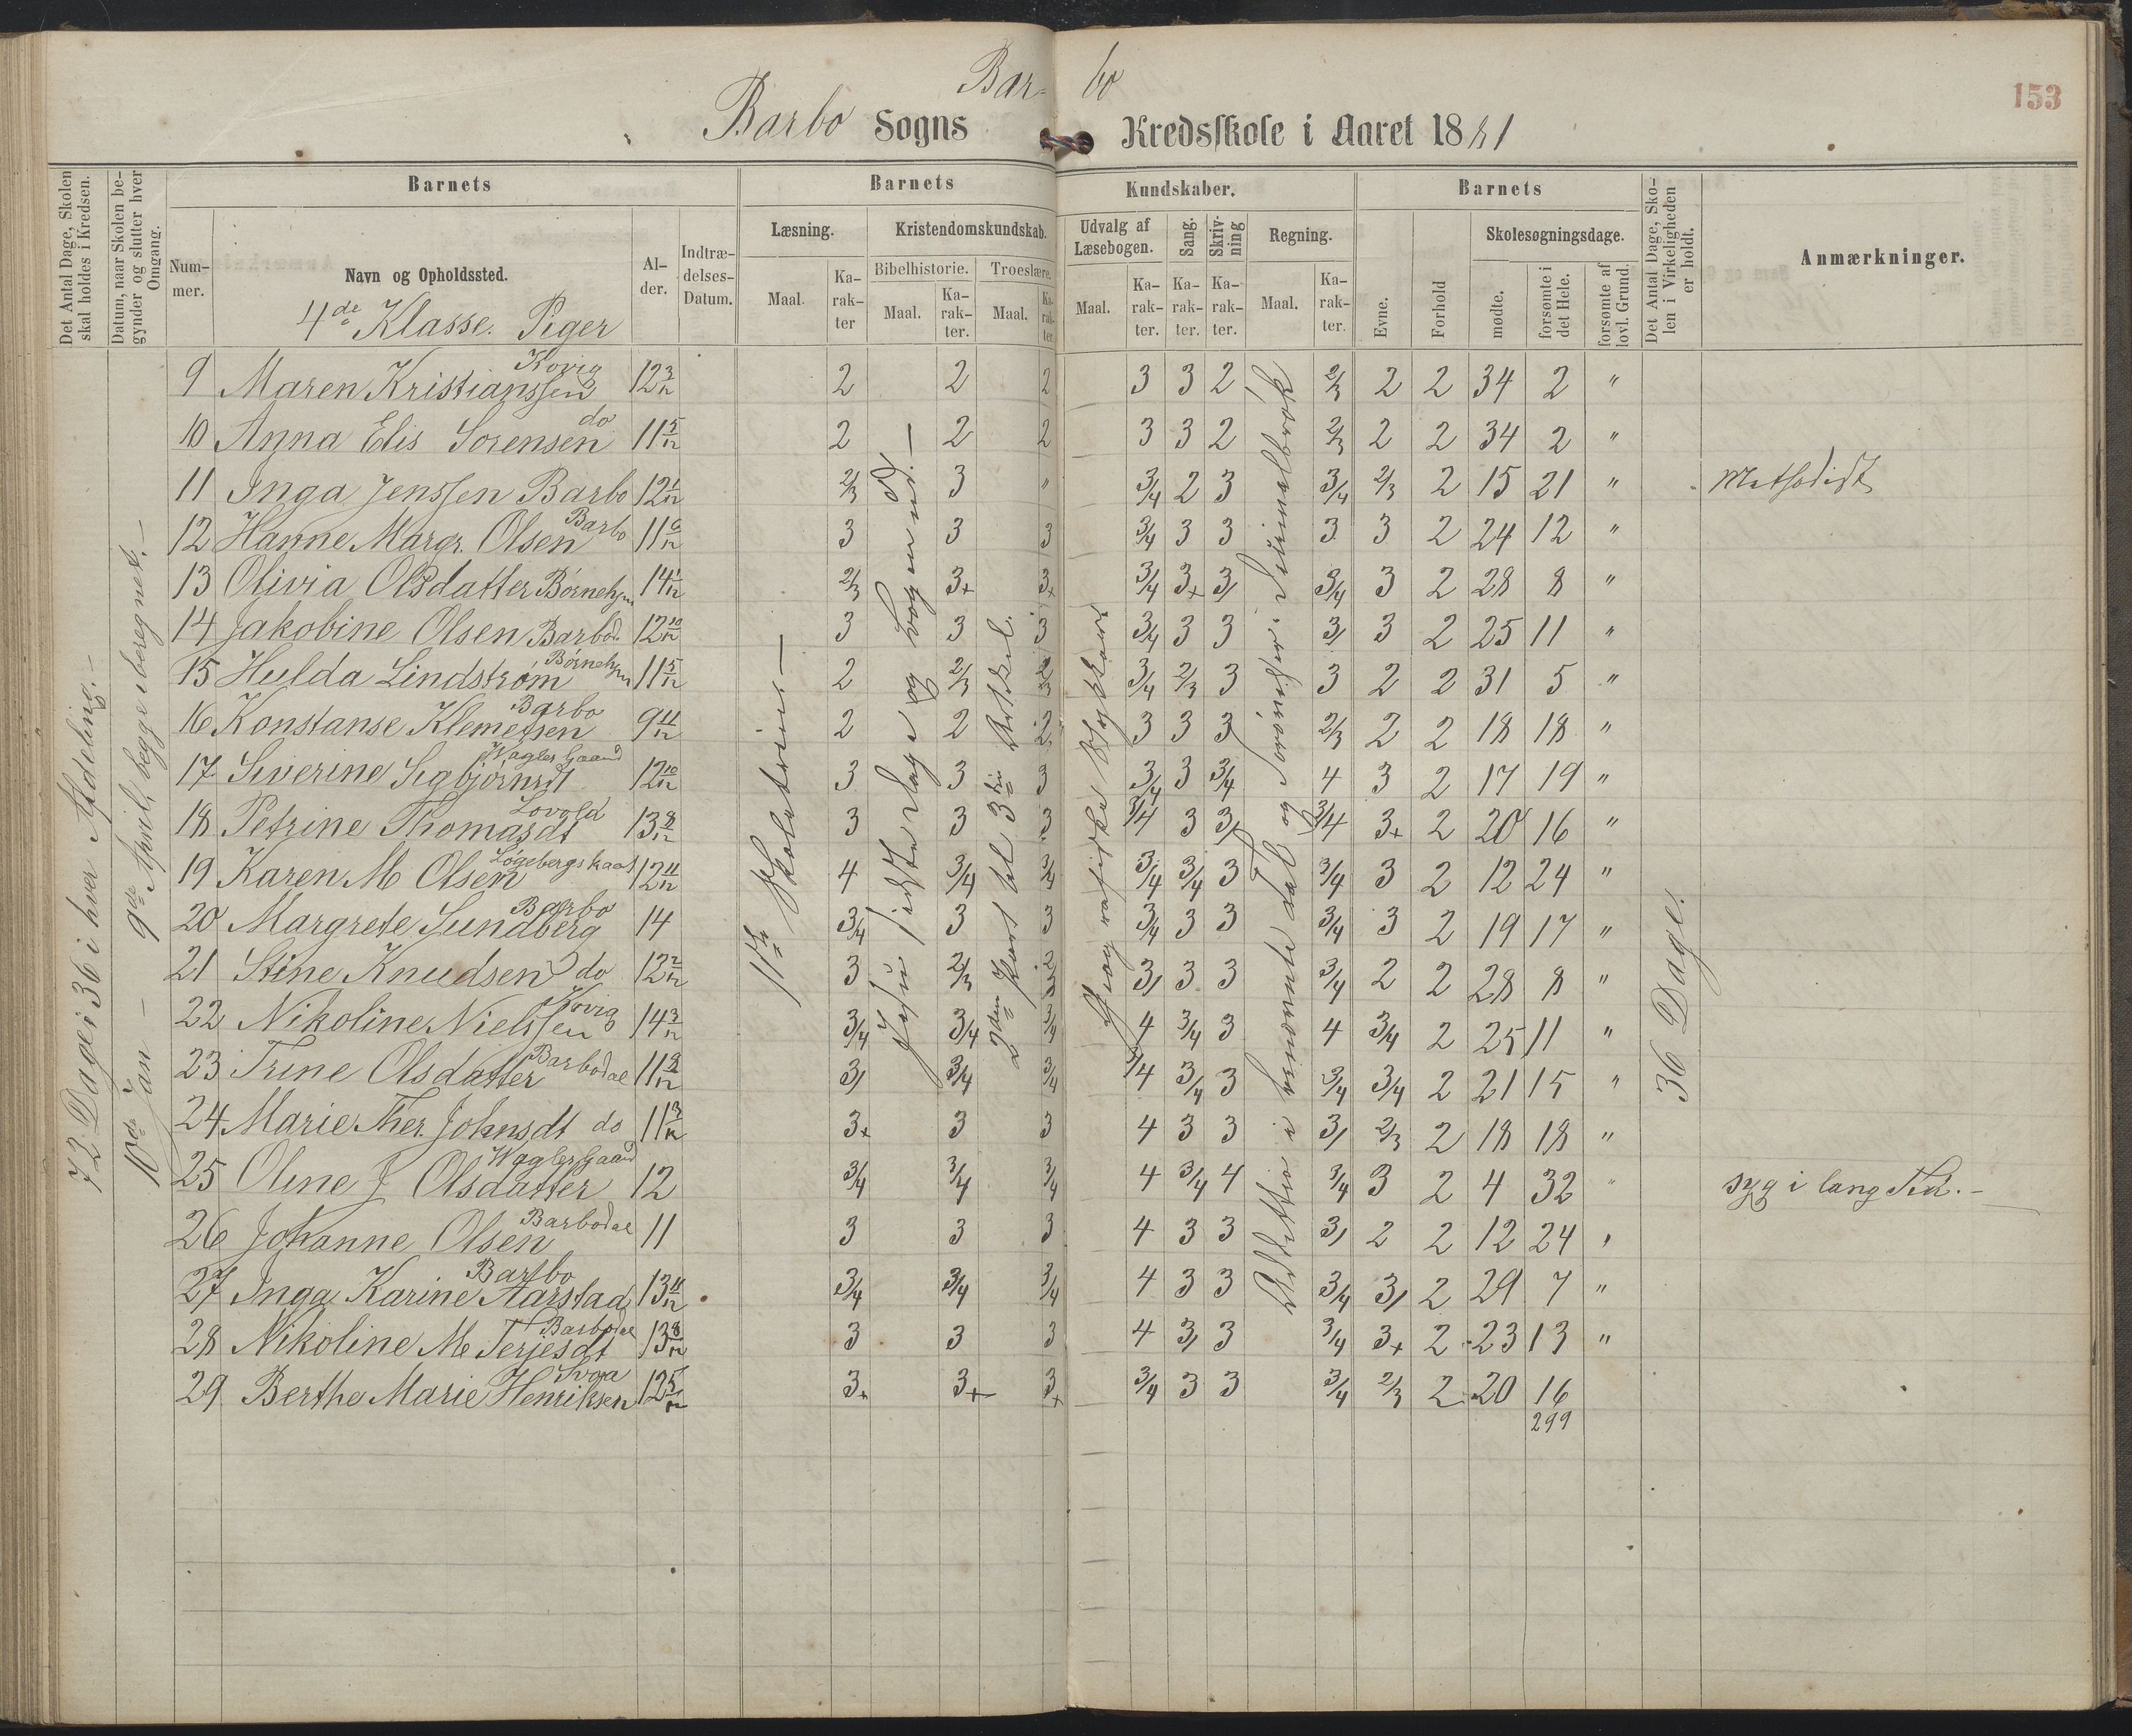 Bar- bo
153
Barbo Sogns Kredsskole i Aaret 1881
Det Antal Dage, Skolen skal holdes i Kredsen.
Datum, naar Skolen begynder og slutter hver Omgang.
Barnets
Nummer.
Navn og Opholdssted.
4de Klasse. Piger
Alder.
Indtrædelses-Datum.
Barnets Kundskaber.
Læsning.
Maal.
Karakter
Kristendomskundskab.
Bibelhistorie.
Maal.
Karakter.
Troeslære.
Maal.
Karakter
Udvalg af Læsebogen.
Maal.
Karakter.
Sang.
Karakter.
Skrivning
Karakter.
Regning.
Maal.
Karakter.
Barnets
Evne.
Forhold
Skolesøgningsdage.
mødte.
forsømte i det Hele.
forsømte af lovl. Grund.
Det Antal Dage, Skolen i Virkeligheden er holdt.
Anmærkninger.
72 Dage i 36 i hver Afdeling.-
10de Jan - 9de April, begge iberegnet.-
11te Skoletrin.-
Jesu sidste Dage og bogen ud.-
2den Part til 3die Artikel.
Geografiske Stykker
36 Dage.
9 Maren Kristianssen Kovig 12 3/12 2 2 2 3 3 2 2/3 2 2 34 2 "
10 Anna Elis Sorensen do 11 5/12 2 2 2 3 3 2 2/3 2 2 34 2 "
11 Inga Jenssen Barbo 12 1/12 2/3 3 " 3/4 2 3 3/4 2/3 2 15 21 " Methodist
12 Hanne Margr. Olsen Barbo 11 6/12 3 3 3 3/4 3 3 3 3 2 24 12 "
13 Olivia Olsdatter Börnehjm 14 1/12 2/3 3+ 3+ 3/4 3+ 3/ 3/4 3 2 28 8 "
14 Jakobine Olsen Barbod. 12 10/12 3 3 3 3/4 3 3 3/ 3 2 25 11 "
15 Hulda Lindström Börnehjm 11 5/12 2 2/3 2/3 3/4 2/3 3 3 2 2 31 5 "
16 Konstanse Klemetsen Barbo 9 11/12 2 2 2 3 3 3 2/3 2 2 18 18 "
17 Severine Sigbjörnsdt Wagles Gaard 12 10/12 3 3 3 3/4 3 3/4 4 3 2 17 19 "
18 Petrine Thomasdt Lovold 13 8/12 3 3 3 3/4 3 3/ 3/4 3+ 2 20 16 "
19 Karen M Olsen Lögebergskaas 12 11/12 4 3/4 3/4 3/4 3/4 3 3/4 3 2 12 24 "
20 Margrete Sundberg Barbo 14 3/4 3 3 3/4 3 3 3/4 3 2 19 17 "
21 Stine Knudsen do 12 2/12 3 2/3 2/3 3/ 3 3 3/4 2 2 28 8 "
22 Nikoline Nielssen Kovig 14 3/12 3/4 3/4 3/4 4 3/4 3 4 3/4 2 25 11 "
23 Trine Olsdatter Barbodal 11 9/12 3/ 3/4 3/4 3/4 3/4 3 3/4 3/4 2 21 15 "
24 Marie Ther. Johnsdt do 11 3/12 3+ 3 3 4 3 3 3/ 2/3 2 18 18 "
25 Oline J Olsdatter Wagles Gaard 12 3/4 3/4 3/4 4 3/4 4 3/4 3 2 4 32 " syg i lang Tid.-
26 Johanne Olsen Barbodal 11 3 3 3 4 3 3 3/ 2 2 12 24 "
27 Inga Karine Aarstad Barbo 13 11/12 3/4 3/4 3/4 4 3 3 3/4 3/ 2 29 7 "
28 Nikoline M Terjesdt Barbodal 13 8/12 3 3 3 4 3/ 3 3/4 3+ 2 23 13 "
29 Berthe Marie Henriksen 12 5/12 3+ 3+ 3+ 3/4 3 3 3/4 2/3 2 20 16
299